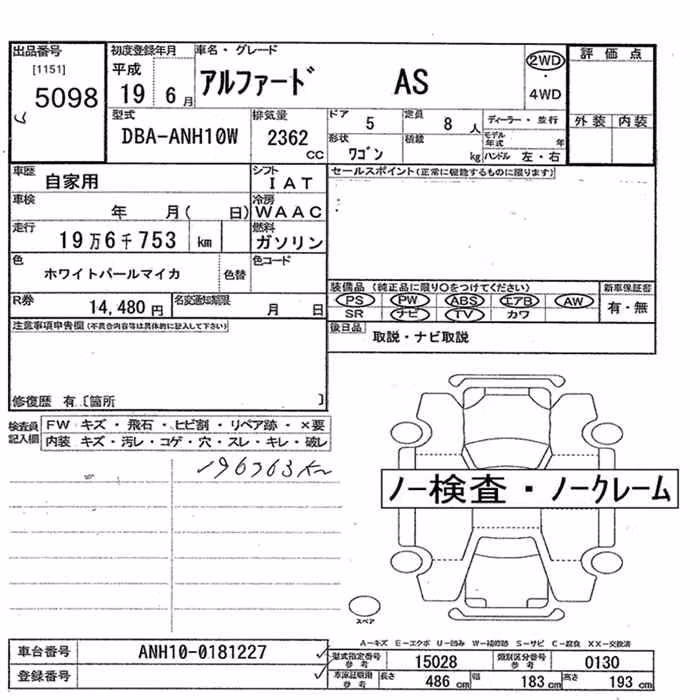 出品番号 初度登録年月 車名・グレード 評価点
[1151] 平成 アルファード AS 2WD
5098 19 6月 ・ 4WD
型式 排気量 ドア 5 定員 8人 ディーラー・並行 外装 内装
DBA-ANH10W 2362 cc 形状 ワゴン 積載 kg モデル年式 年
ハンドル 左・右
車歴 自家用 シフト IAT セールスポイント(正常に機能するものに限ります)
車検 年 月( 日) 冷房 WAAC
走行 19万6千753 km 燃料 ガソリン
色 ホワイトパールマイカ 色替 色コード
装備品 (純正品に限り○をつけてください) 新車保証書
R券 14,480円 名変通知期限 月 日 PS PW ABS エアB AW 有・無
SR ナビ TV カワ
注意事項申告欄(不具合内容等は具体的に記入して下さい) 後日品 取説・ナビ取説
修復歴 有〔箇所 〕
検査員記入欄 FW キズ・飛石・ヒビ割・リペア跡・×要
内装 キズ・汚レ・コゲ・穴・スレ・キレ・破レ
196763km
ノー検査・ノークレーム
スペア
A-キズ E-エクボ U-凹み W-補修跡 S-サビ C-腐食 XX-交換済
車台番号 ANH10-0181227 型式指定番号 参考 15028 類別区分番号 参考 0130
登録番号 車検証現用 参考 長さ 486 cm 幅 183 cm 高さ 193 cm